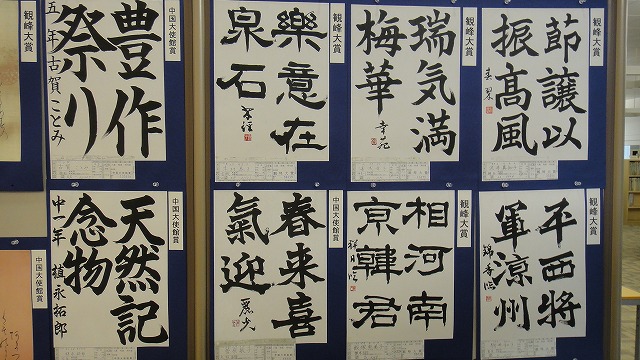 観峰大賞
中国大使館賞
豊作
祭り
五年 古賀ことみ
観峰大賞
樂意在
泉石
観峰大賞
瑞気満
梅華
観峰大賞
節譲以
振高風
春翠
中国大使館賞
天然記
念物
中一年 植永拓郎
中国大使館賞
春来喜
氣迎
観峰大賞
相河南
京韓君
観峰大賞
平西将
軍涼州
中国大使館賞